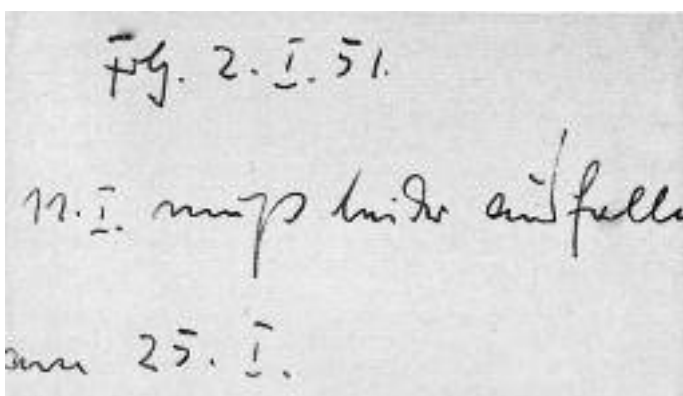 Frbg. 2. I. 51.
11. I. muß leider ausfalle
am 25. I.